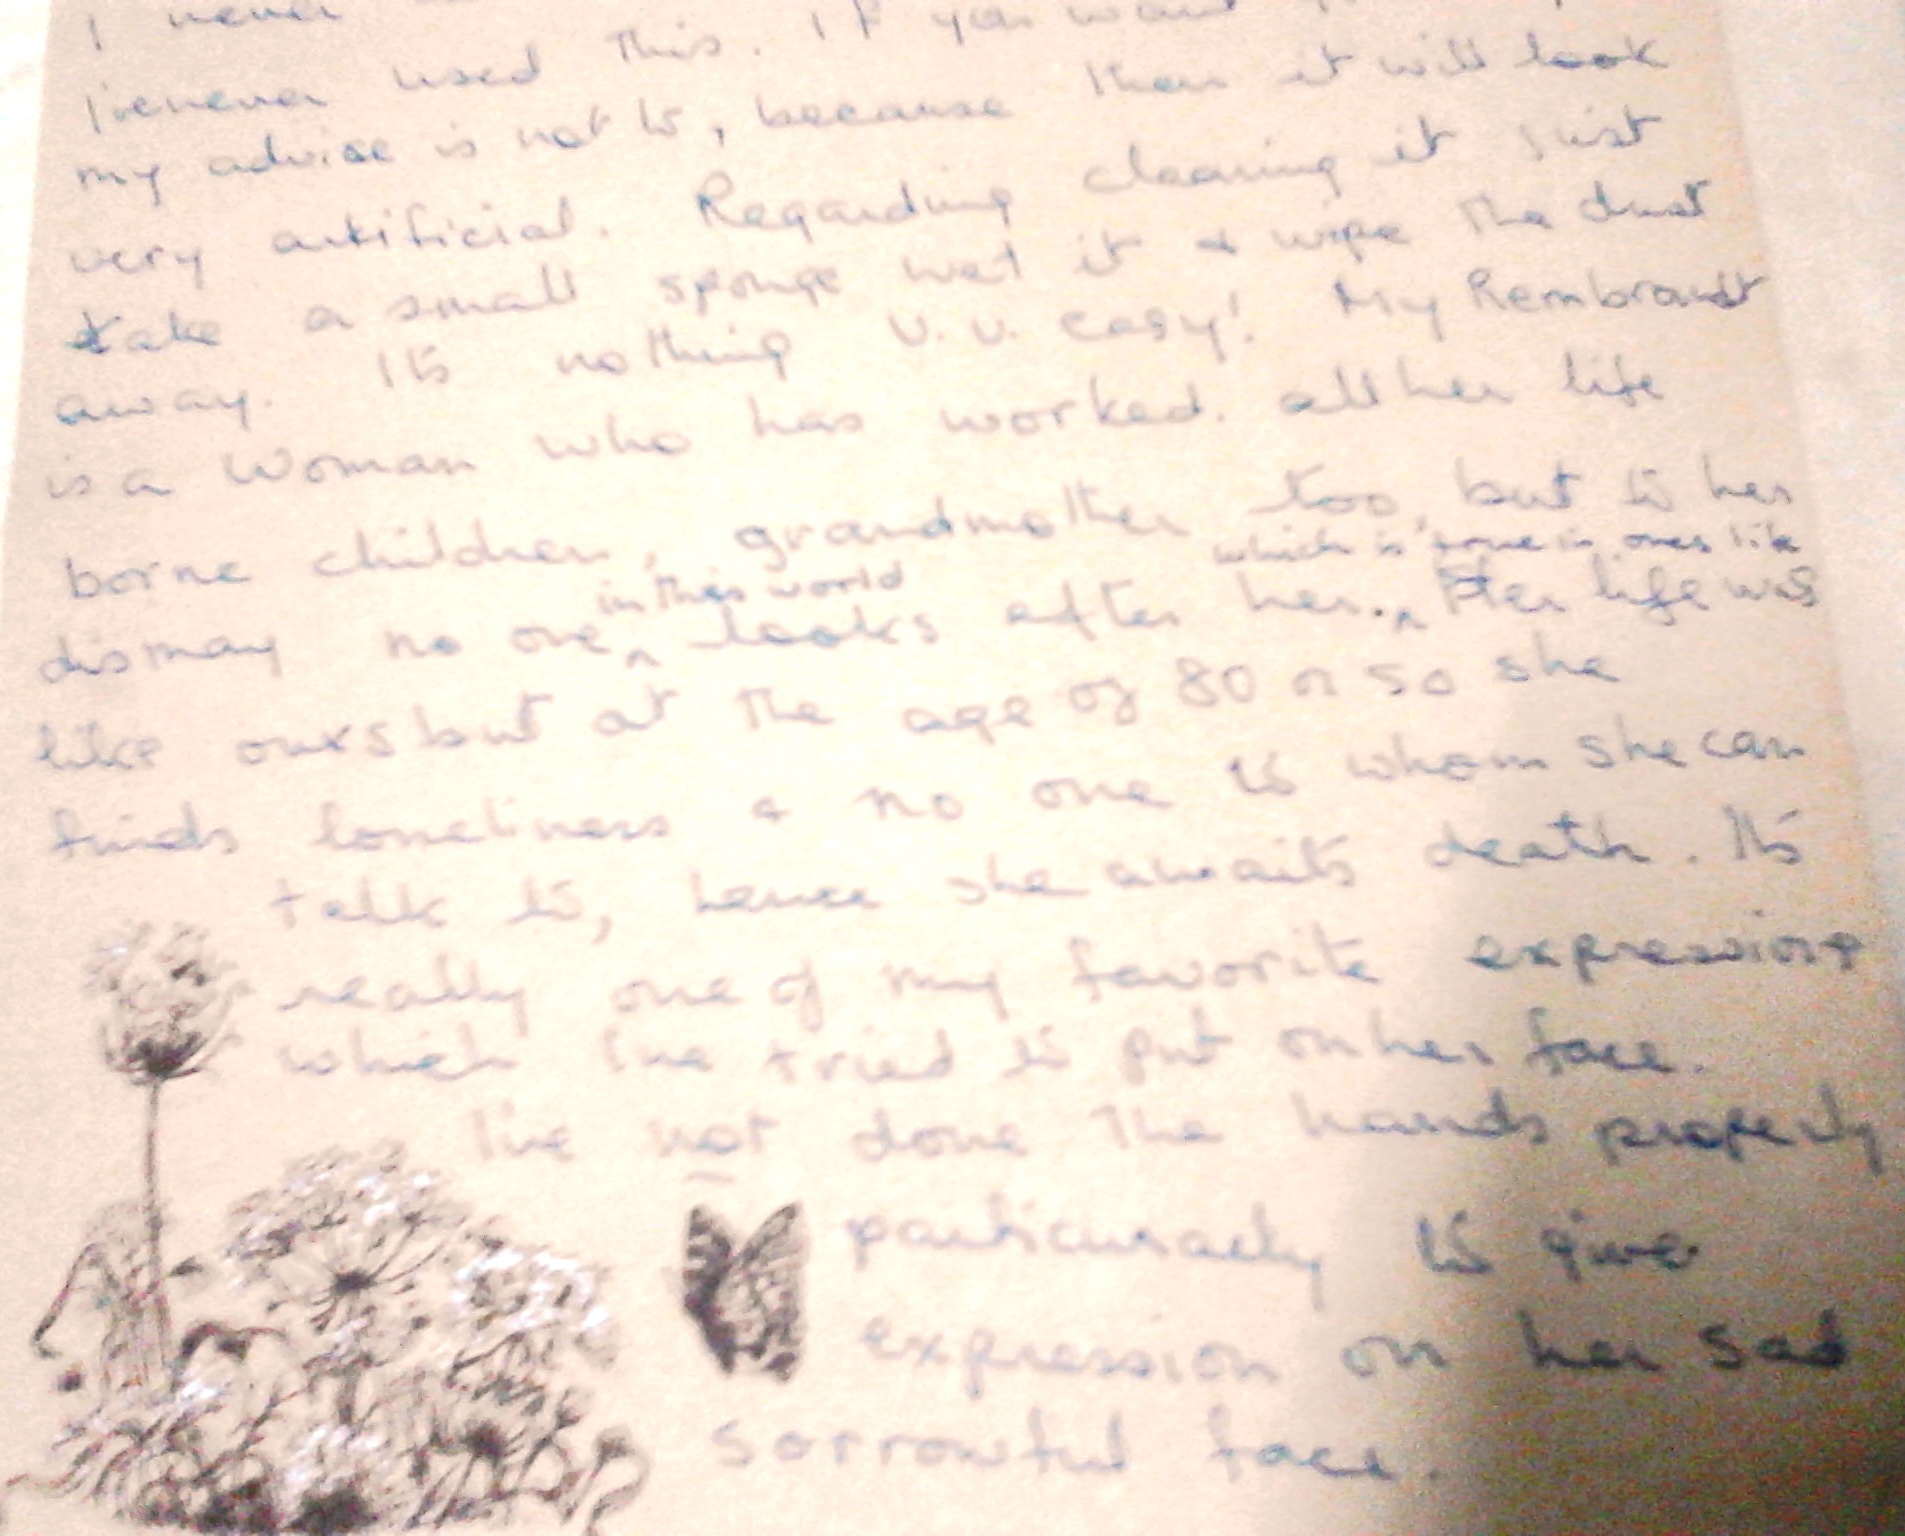 I never
I'venever used this. If you want
my advise is not to, because then it will look
very artificial. Regarding cleaning it just
take a small sponge wet it & wipe the dust
away. Its nothing V. V. easy! My Rembrandt
is a woman who has worked. all her life
borne children, grandmother too, but to her
which is in ones like
in this world
dismay no one looks after her. Her life was
like ours but at the age of 80 or 50 she
finds loneliness & no one to whom she can
talk to, hence she awaits death. Its
really one of my favorite expressions
which I've tried to put on her face.
I've not done the hands properly
particuraely to give
expression on her sad
sorrowful face.